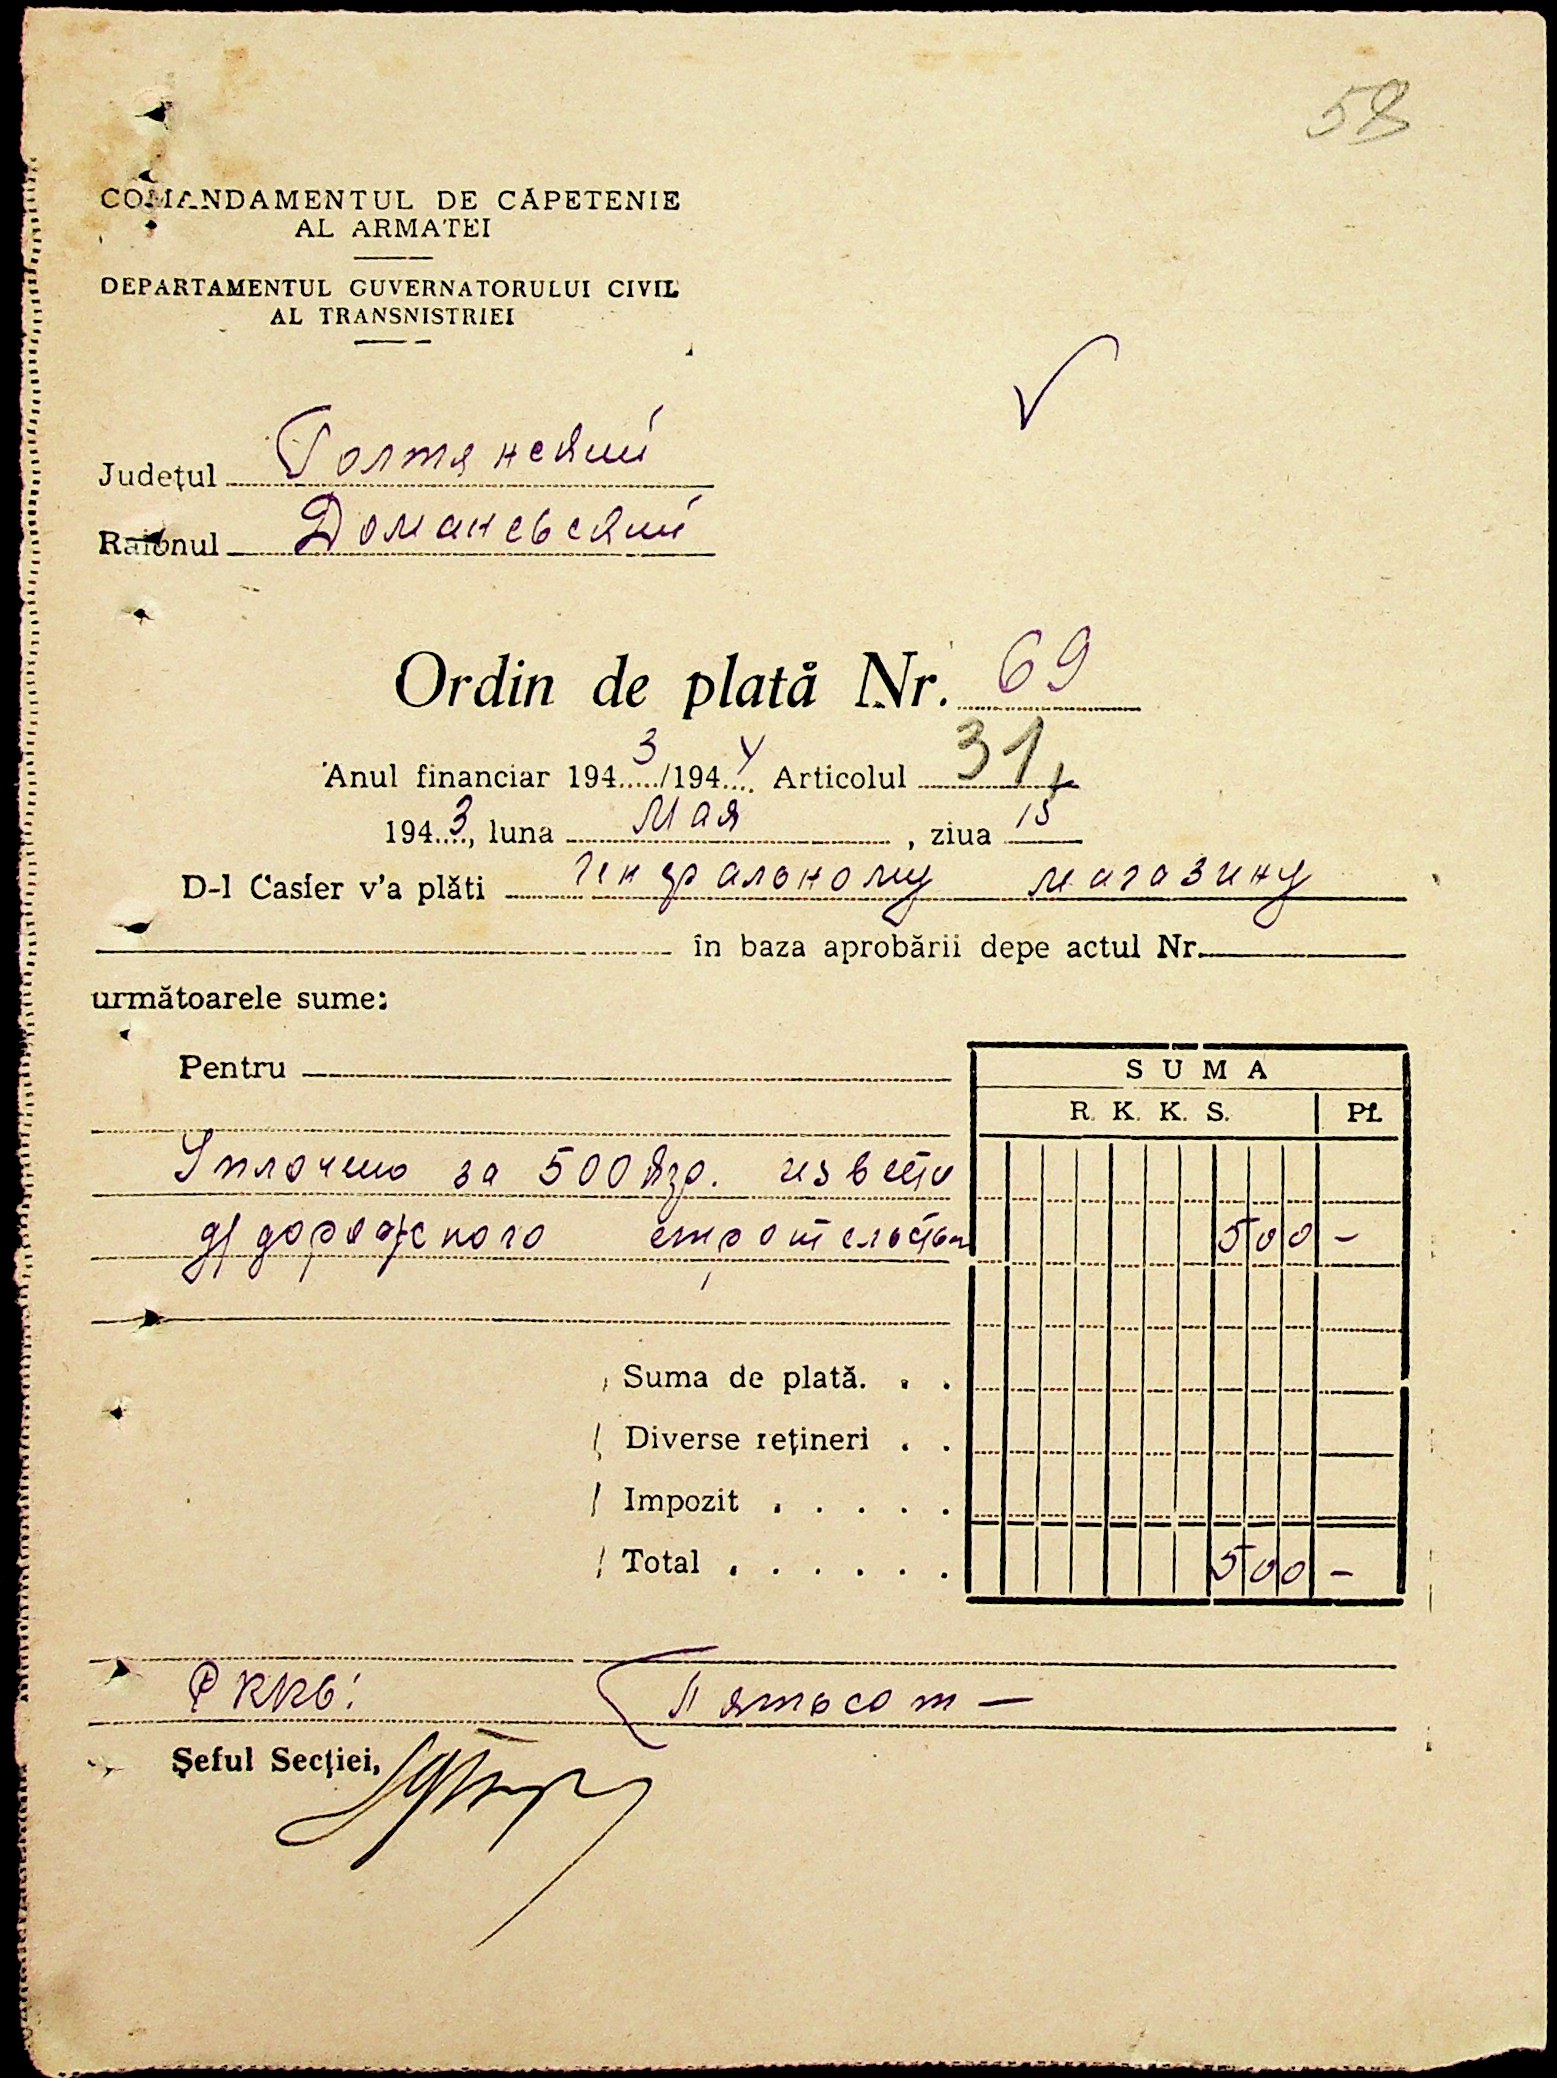 58
COMANDAMENTUL DE CĂPETENIE
AL ARMATEI
DEPARTAMENTUL GUVERNATORULUI CIVIL
AL TRANSNISTRIEI
Județul Голтянский
Raionul Доманевский
Ordin de plată Nr. 69
Anul financiar 1943/1944 Articolul 31
1943, luna Мая, ziua 15
D-l Casier v'a plăti Центральному магазину
în baza aprobării depe actul Nr.
următoarele sume:
Pentru
SUMA
R. K. K. S. Pf.
Уплочено за 500 кгр. извести
дл дорожского строительства 500 -
Suma de plată. . .
Diverse rețineri . .
Impozit . . . . .
Total . . . . . . 500 -
РККС: Пятьсот —
Șeful Secției,